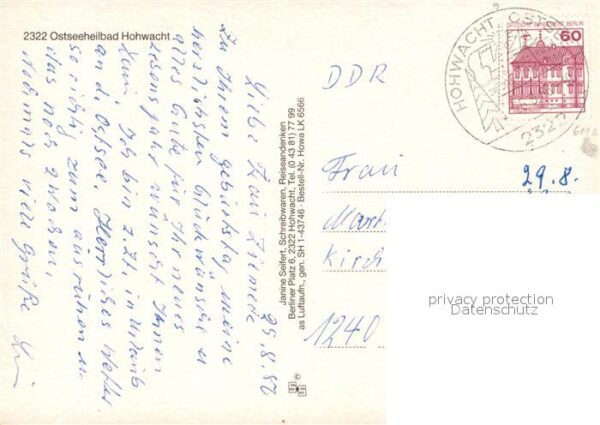 2322 Ostseeheilbad Hohwacht
25.8.82
Liebe Frau Ziemere
Zu Ihrem Geburtstag meine
herzlichsten Glückwünsche u.
alles Gute für Ihr neues
Lebensjahr wünscht Ihnen
Ich bin z.Zt. in Urlaub
an d. Ostsee. Herrliches Wetter
so richtig zum ausruhen u.
das noch 2 Wochen.
Nochmals viel Grüße
Janine Seifert, Schreibwaren, Reiseandenken
Berliner Platz 6, 2322 Hohwacht, Tel. (0 43 81) 77 99
as Luftaufn., gen. SH 1-43746 · Bestell-Nr. Howa LK 6566
©
DDR
HOHWACHT, OSTSEE
2322
DEUTSCHE BUNDESPOST BERLIN
60
Frau
29.8.
Kirch
1240
privacy protection
Datenschutz